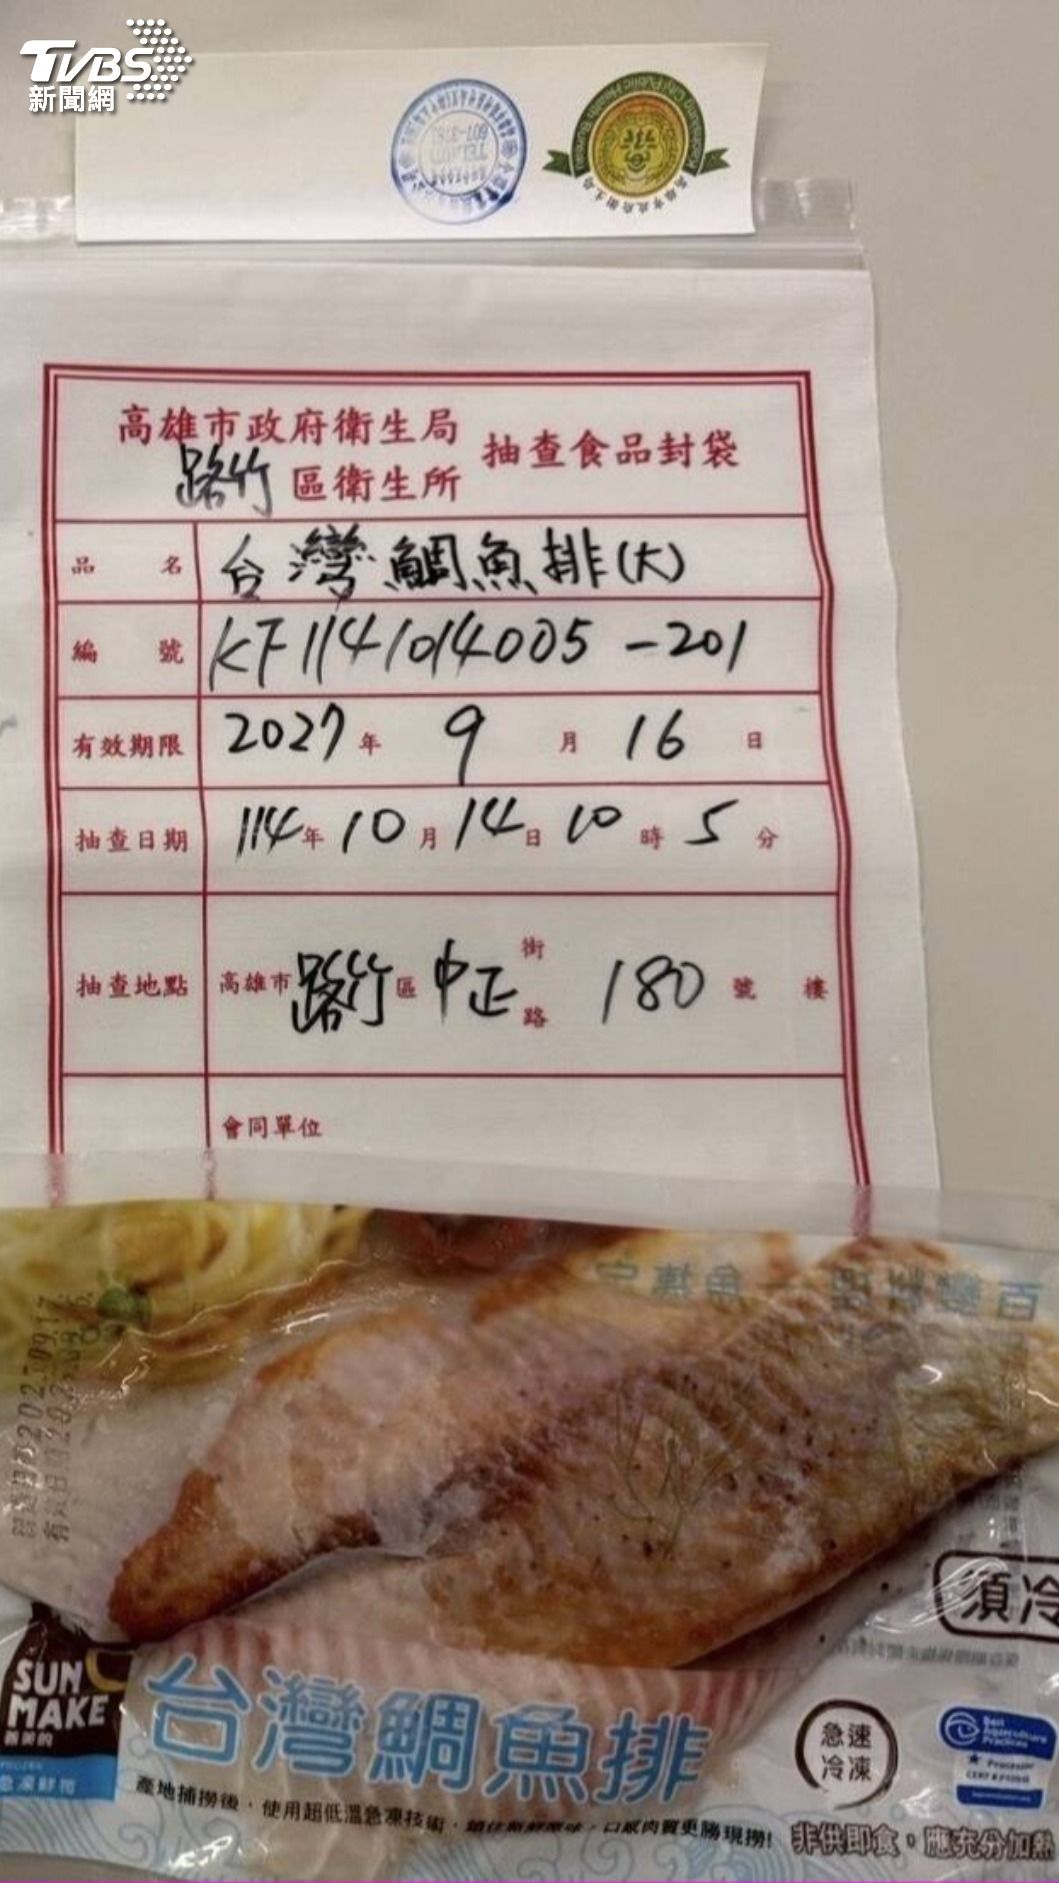 TVBS
新聞網
高雄市政府衛生局
路竹區衛生所
抽查食品封袋
品名 台灣鯛魚排(大)
編號 KF1141014005-201
有效期限 2027年9月16日
抽查日期 114年10月14日10時5分
抽查地點 高雄市路竹區中正街路180號樓
會同單位
須冷
SUN
MAKE
台灣鯛魚排
急速
冷凍
Best
Aquaculture
Practices
產地捕撈後，使用超低溫急凍技術，
口感肉質更勝現撈!
非供即食，應充分加熱